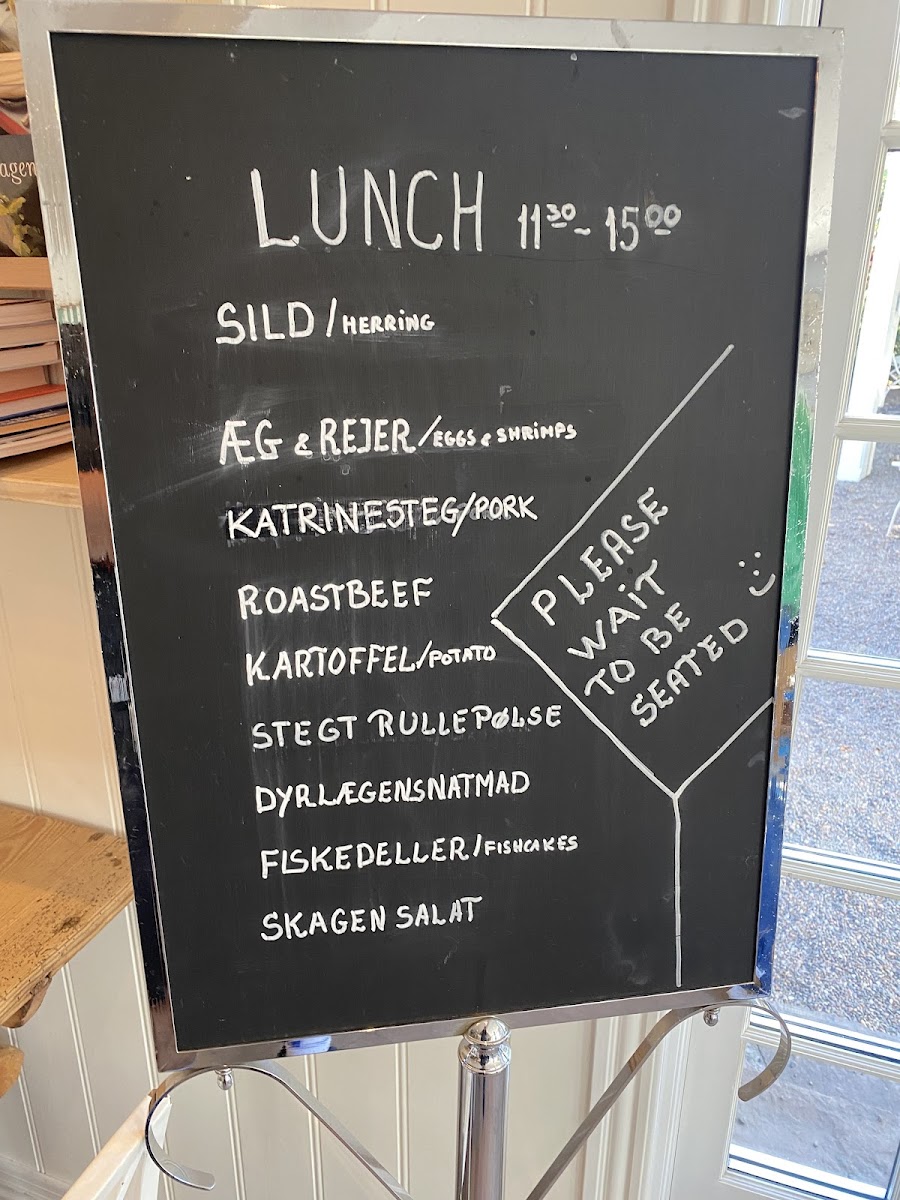 LUNCH 11³⁰ - 15⁰⁰
SILD / HERRING
ÆG & REJER / EGGS & SHRIMPS
KATRINESTEG/PORK
ROASTBEEF
KARTOFFEL/POTATO
STEGT RULLEPØLSE
DYRLÆGENSNATMAD
FISKEDELLER/FISHCAKES
SKAGEN SALAT
PLEASE
WAIT
TO BE
SEATED :)
agen